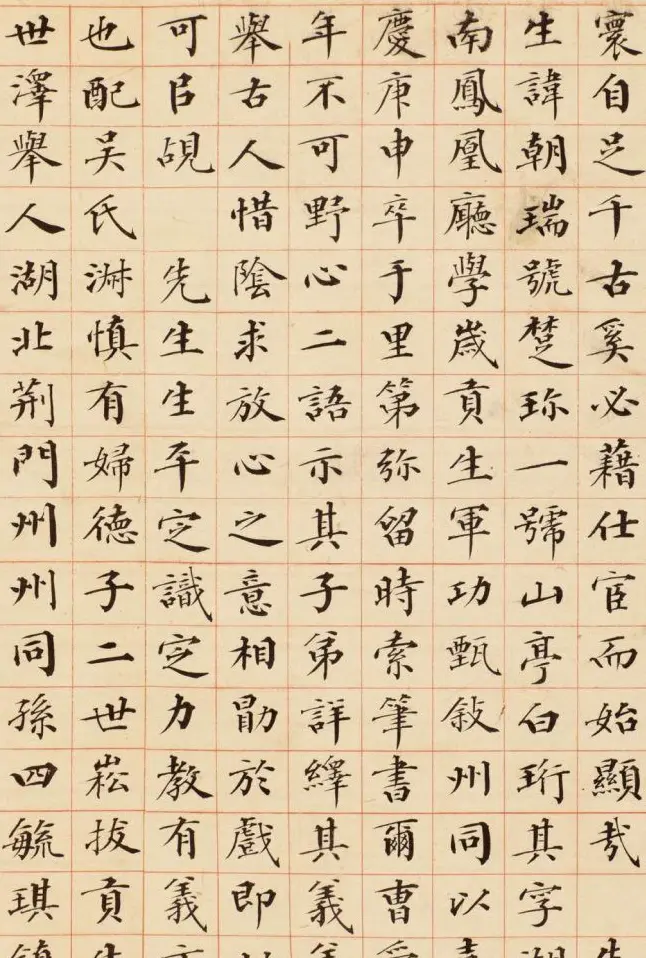 寰自足千古奚必藉仕宦而始顯哉
生諱朝瑞號楚珎一號山亭白珩其字湖
南鳳凰廳學歲貢生軍功甄敘州同以
慶庚申卒于里第弥留時索筆書爾曹
年不可野心二語示其子弟詳繹其義
舉古人惜陰求放心之意相勖於戲即
可㠯覘 先生生平定識定力教有義
也配吳氏淑慎有婦徳子二世崧拔貢生
世澤舉人湖北荆門州州同孫四毓琪